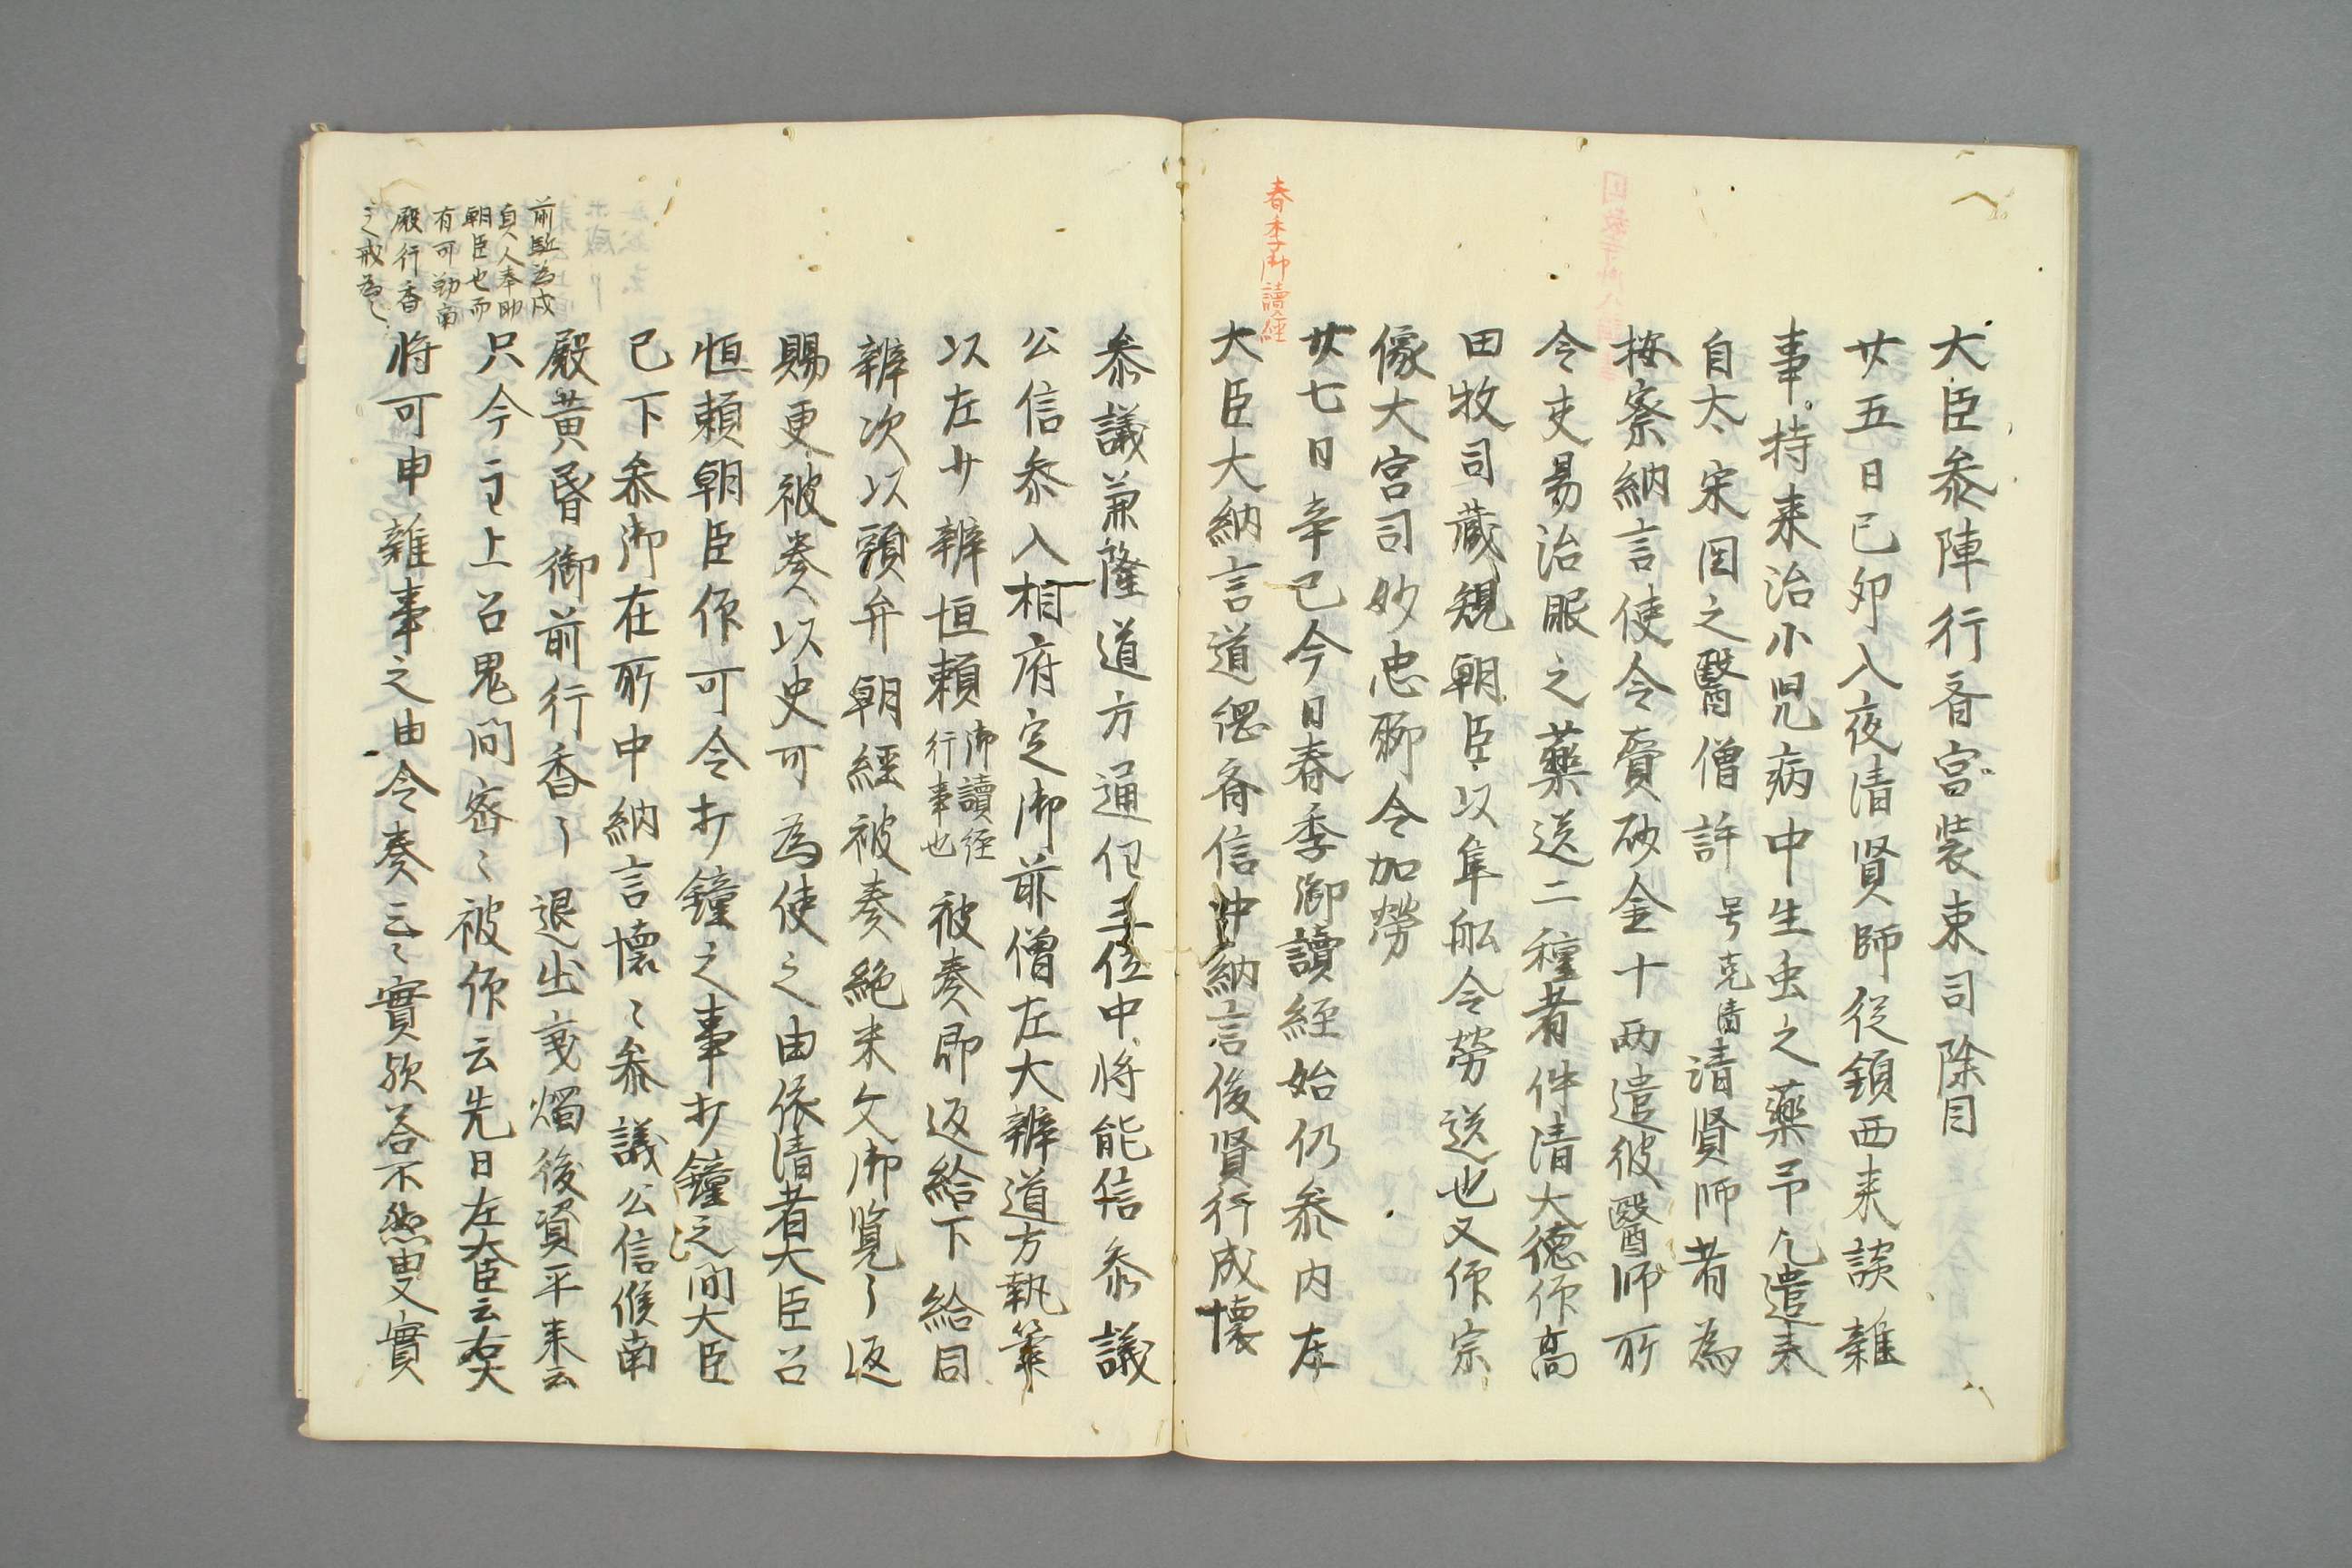 大臣参陣行斎宮装束司除目
廿五日己卯入夜清賢師従鎮西来談雑
事持来治小児病中生虫之薬予乞遣来
自大宋国之醫僧許号克清清賢師者為
按察納言使令賷砂金十両遣彼醫師所
令交易治眼之薬送二種者件清大徳仰高
田牧司蔵規朝臣以隼舩令労送也又仰宗
像大宮司妙忠聊令加労
春季御讀経
廿七日辛巳今日春季御讀経始仍参内左
大臣大納言道綱斉信中納言俊賢行成懐
参議兼隆道方通任三位中将能信参議
公信参入相府定御前僧左大辨道方執筆
以左少辨恒頼御讀経行事也被奏即返給下給同
辨次以頭弁朝経被奏絶来文御覧了返
賜更被奏以史可為使之由依清者大臣召
恒頼朝臣仰可令打鐘之事打鐘之間大臣
已下参御在所中納言懐〻参議公信候南
殿黄昏御前行香了退出乗燭後資平来云
只今主上召鬼間密〻被仰云先日左大臣云右大
将可申雑事之由令奏云〻實欤答不然叓又實
前駈為成
貞人奉助
朝臣也而
有可勤南
殿行香
之戒為〻